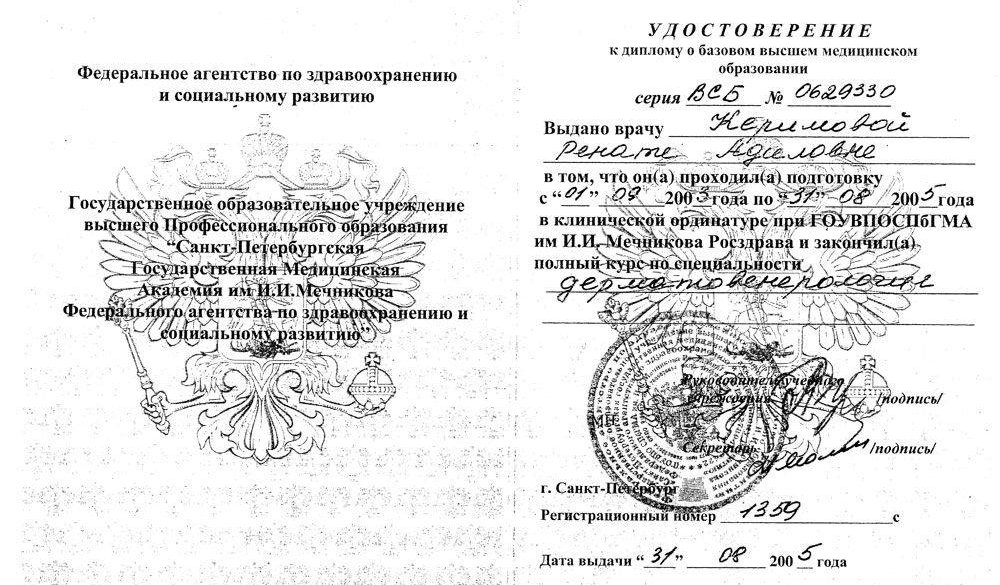 Федеральное агентство по здравоохранению
и социальному развитию
Государственное образовательное учреждение
высшего Профессионального образования
“Санкт-Петербургская
Государственная Медицинская
Академия им И.И.Мечникова
Федерального агентства по здравоохранению и
социальному развитию”
УДОСТОВЕРЕНИЕ
к диплому о базовом высшем медицинском
образовании
серия ВСБ № 0629330
Выдано врачу Керимовой
Ренате Адиловне
в том, что он(а) проходил(а) подготовку
с “01” 09 2003 года по “31” 08 2005 года
в клинической ординатуре при ГОУВПОСПбГМА
им И.И. Мечникова Росздрава и закончил(а)
полный курс по специальности
дерматовенерология
Руководитель учебного
учреждения /подпись/
Секретарь /подпись/
г. Санкт-Петербург
Регистрационный номер 1359 с
Дата выдачи “31” 08 2005 года